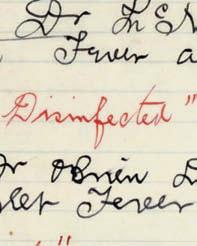 Dr
Fever a
Disinfected "
Dr OBrien D
let Fever
"